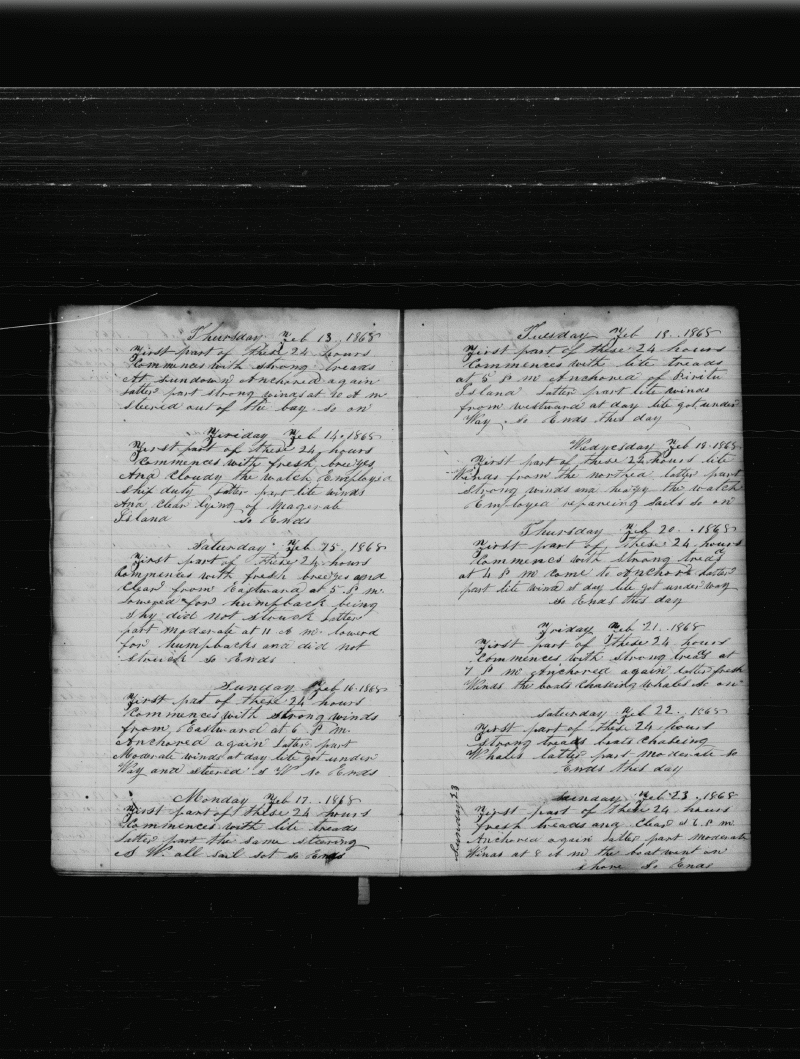 Thursday Feb 13, 1868
First part of these 24 hours
Commences with strong treads
At Sundown Anchored again
latter part strong winds at 10 A m
steered out of the bay so on
Friday Feb 14, 1868
First part of these 24 hours
Commences with fresh breezes
And Cloudy the watch Employed
ship duty latter part lite winds
And clear lying of Magerab
Island so Ends
Saturday Feb 15, 1868
First part of these 24 hours
Commences with fresh breezes and
Clear from Eastward at 5 P m
lowered for humpback being
shy did not struck latter
part moderate at 11 A m lowerd
for humpbacks and did not
strick so Ends
Sunday Feb 16 1868
First par of these 24 hours
Commences with strong winds
from Eastward at 6 P m.
Anchored again latter part
Moderate winds at day lite got under
Way and steered S W so Ends
Monday Feb 17, 1868
First part of these 24 hours
Commences with lite treads
latter part the same steering
S W. all sail sot so Ends
Tuesday Feb 18. 1868
First part of these 24 hours
Commences with lite treads
at 5 P m Anchored of Piritu
Island latter part lite winds
from westward at day lite got under
Way so Ends this day
Wedyesday Feb 19. 1868
First part of these 24 hours lite
Winds from the northed latter part
strong winds and the watch
Employed repareing sails so on
Thursday Feb 20. 1868
First part of these 24 hours
Commences with strong treads
at 4 P m come to Anchor latter
part lite wind at day lite got under way
so Ends this day
Friday Feb 21. 1868
First part of these 24 hours
Commences with strong treads at
7 P m Anchored again latter fresh
Winds the boats Chaseing Whales so on
Saturday Feb 22. 1868
First part of these 24 hours
strong treads boats Chaseing
Whales latter part moderate so
Ends this day
Sunday 23
Sunday Feb 23, 1868
First part of these 24 hours
fresh treads and Clear at 6 P m
Anchored again latter part Moderate
Winds at 8 A m the boat went on
shore so Ends